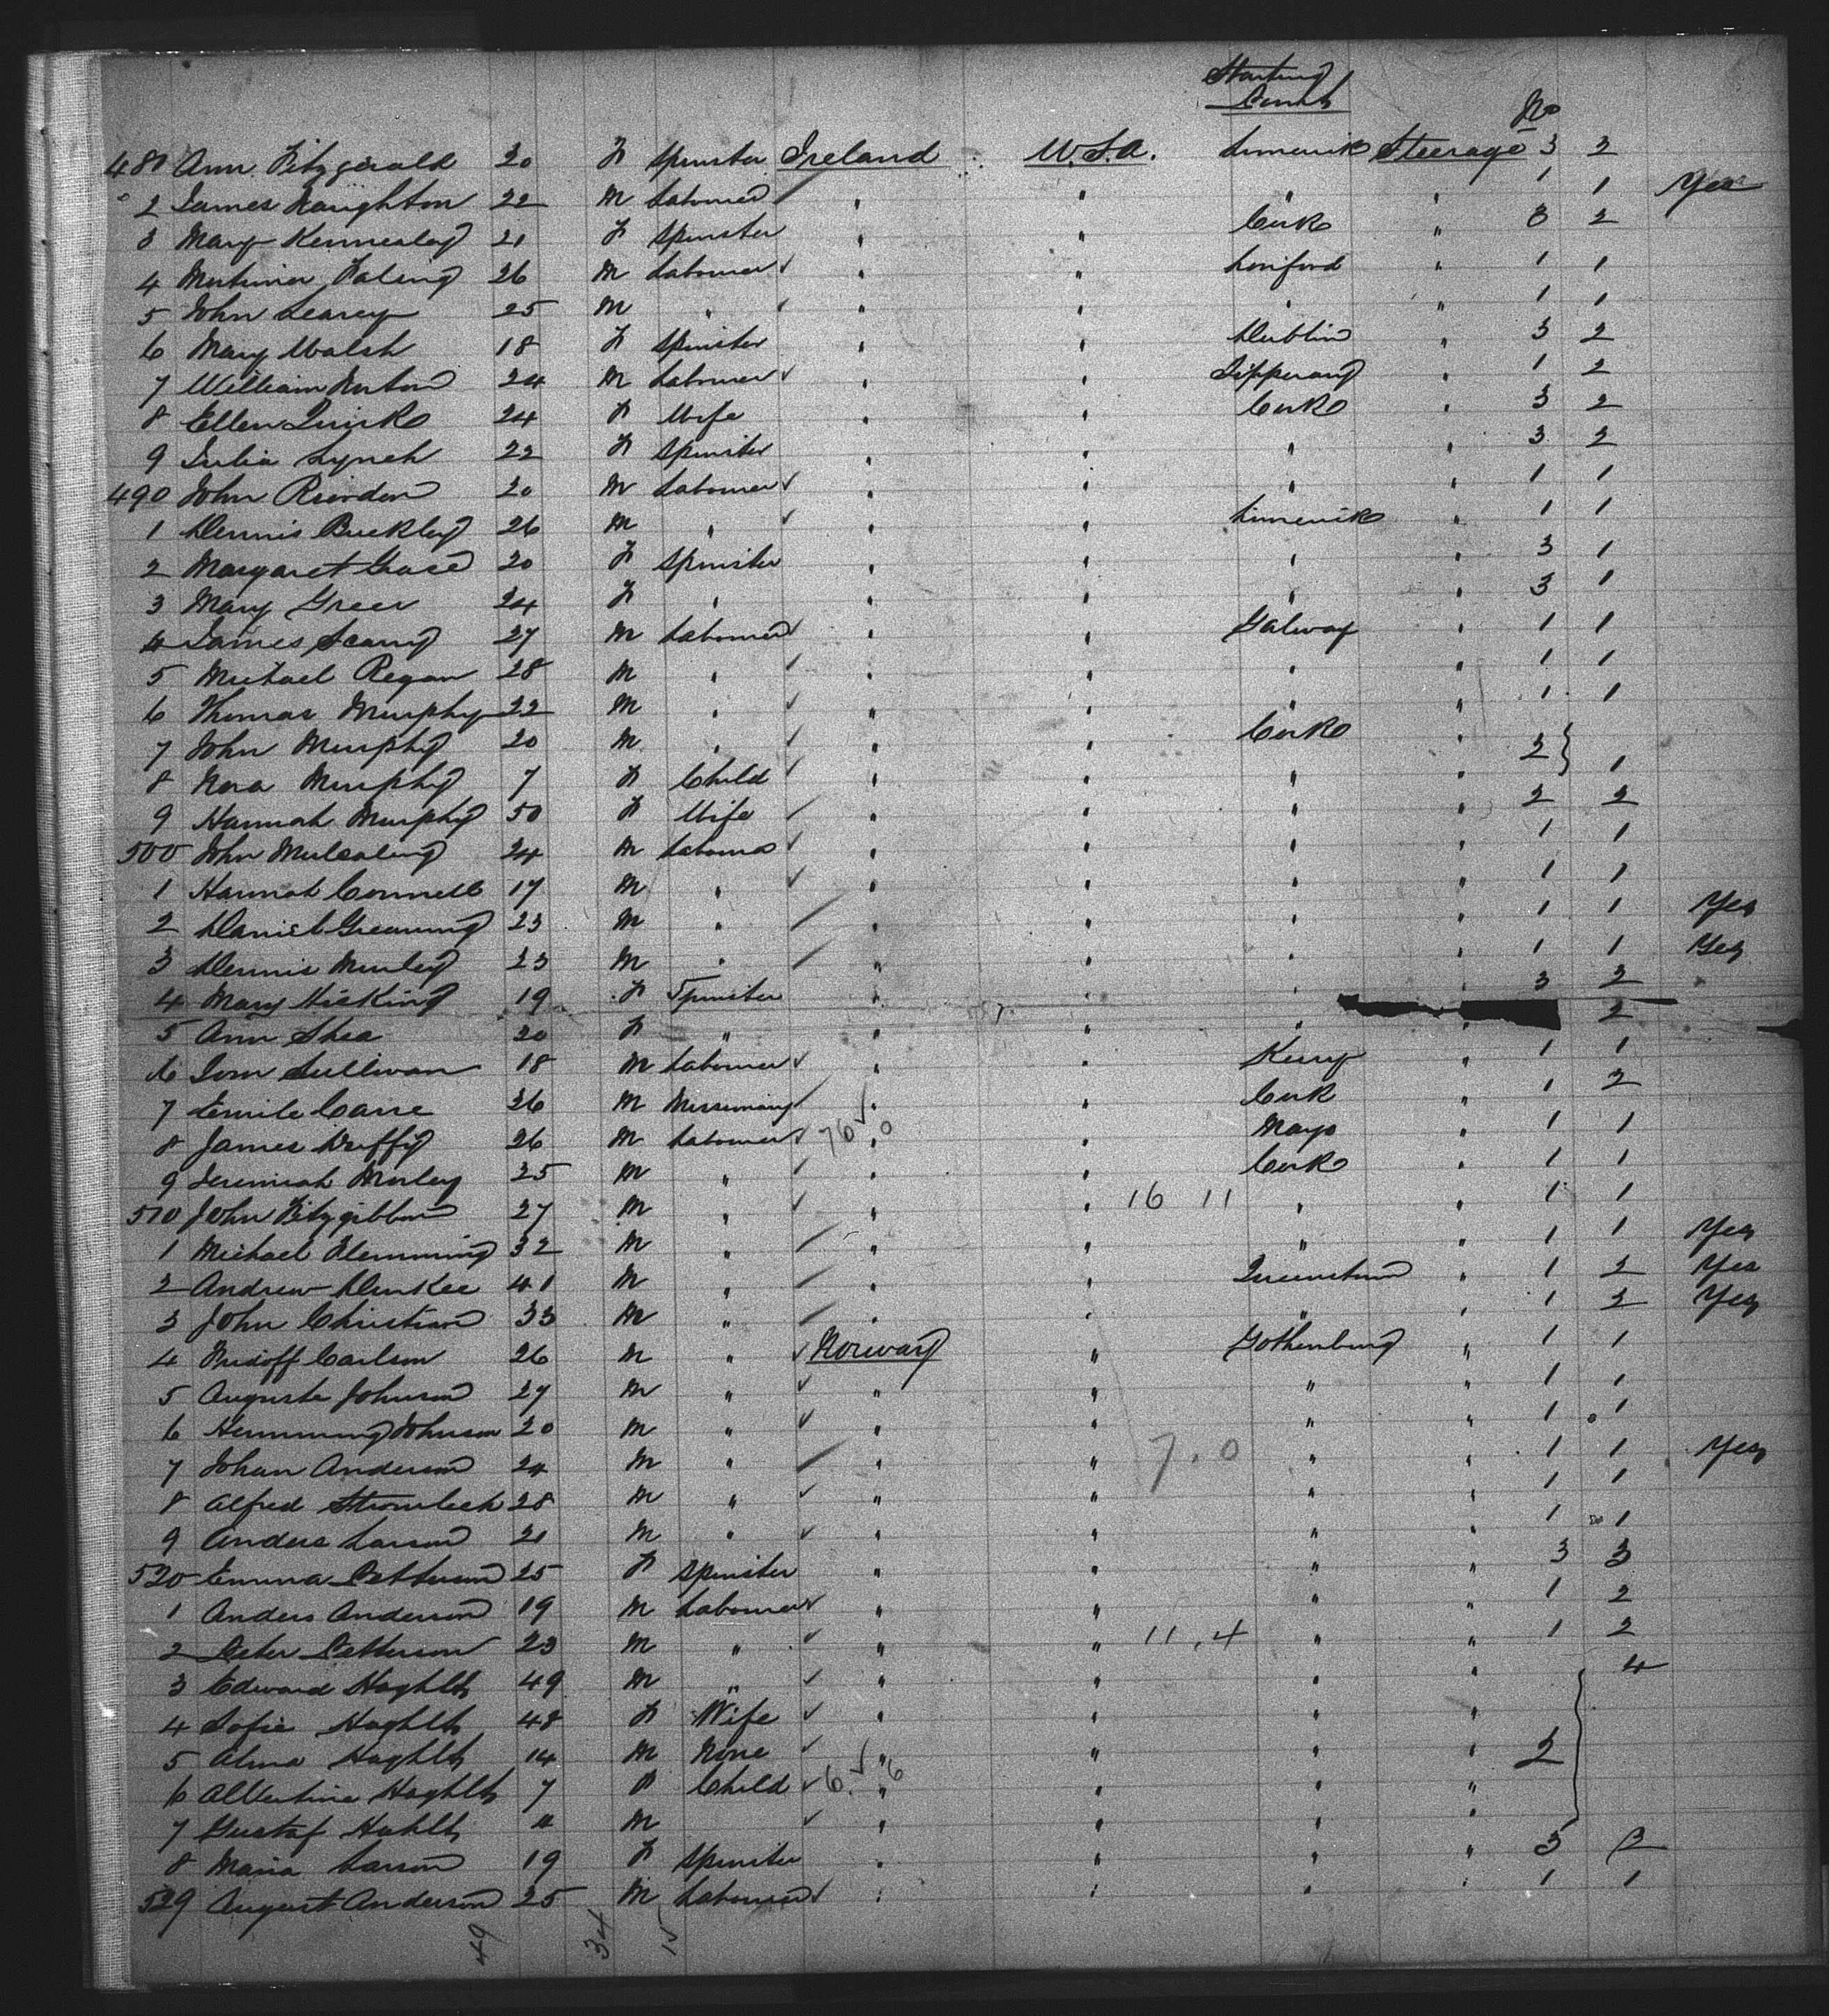 Starting
No
481 Ann Fitzgerald 20 F Spinster Ireland U.S.A. Limerick Steerage 3 2
2 James Naughton 22 M Labourer " " " " 1 1 Yes
3 Mary Kennealey 21 F Spinster " " Cork " 3 2
4 26 M Labourer " " Lonford " 1 1
5 John Learey 25 M " " " " " 1 1
6 Mary Walsh 18 F Spinster " " Dublin " 3 2
7 William Norton 24 M Labourer " " Tipperary " 1 2
8 Ellen Quirk 24 F Wife " " Cork " 3 2
9 Julia Lynch 22 F Spinster " " " " 3 2
490 John Riordon 20 M Labourer " " " " 1 1
1 Dennis Buckley 26 M " " " Limerick " 1 1
2 Margaret Grace 20 F Spinster " " " " 3 1
3 Mary Greer 24 F " " " " " 3 1
4 James 27 M Labourer " " Galway " 1 1
5 Michael Regan 28 M " " " " " 1 1
6 Thomas Murphy 22 M " " " " " 1 1
7 John Murphy 20 M " " " Cork "
8 Nora Murphy 7 F Child " " " " 2 1
9 Hannah Murphy 50 F Wife " " " " 2 2
500 John 24 M Labourer " " " " 1 1
1 Hannah Connell 17 M " " " " " 1 1
2 Daniel Greaning 23 M " " " " " 1 1 Yes
3 Dennis Murley 23 M " " " " " 1 1 Yes
4 Mary Hicking 19 F Spinster " " " " 3 2
5 Ann Shea 20 F " " " " " 2
6 Tom Sullivan 18 M Labourer " " Kerry " 1 1
7 Emile Carre 26 M " " Cork " 1 2
8 James Duffy 26 M Labourer 76 0 " " Mayo " 1 1
9 Jeremiah Morley 25 M " " " Cork " 1 1
510 John Fitzgibbon 27 M " " " 16 11 " " 1 1
1 Michael Flemming 32 M " " " " " 1 1 Yes
2 Andrew Durkee 41 M " " " Queenstown " 1 2 Yes
3 John Christian 33 M " " " " " 1 2 Yes
4 Carlson 26 M " Norway " Gothenburg " 1 1
5 Auguste Johnson 27 M " " " " " 1 1
6 Hemming Johnson 20 M " " " " " 1 1
7 Johan Anderson 24 M " " " 7.0 " " 1 1 Yes
8 Alfred Stromleek 28 M " " " " " 1 1
9 Anders Larson 21 M " " " " " 1 1
520 Emma Petterson 25 F Spinster " " " " 3 3
1 Anders Anderson 19 M Labourer " " " " 1 2
2 Peter Petterson 23 M " " " 11.4 " " 1 2
3 Edward Haghlth 49 M " " " " " 4
4 Sofie Haghlth 48 F Wife " " " "
5 Alma Haghlth 14 M None " " " " 2
6 Albertine Haghlth 7 F Child 6 6 " " " "
7 Gustaf Hahlth 4 M " " " "
8 Maria Larson 19 F Spinster " " " " 3 2
529 August Anderson 25 M Labourer " " " " 1 1
49 34 15